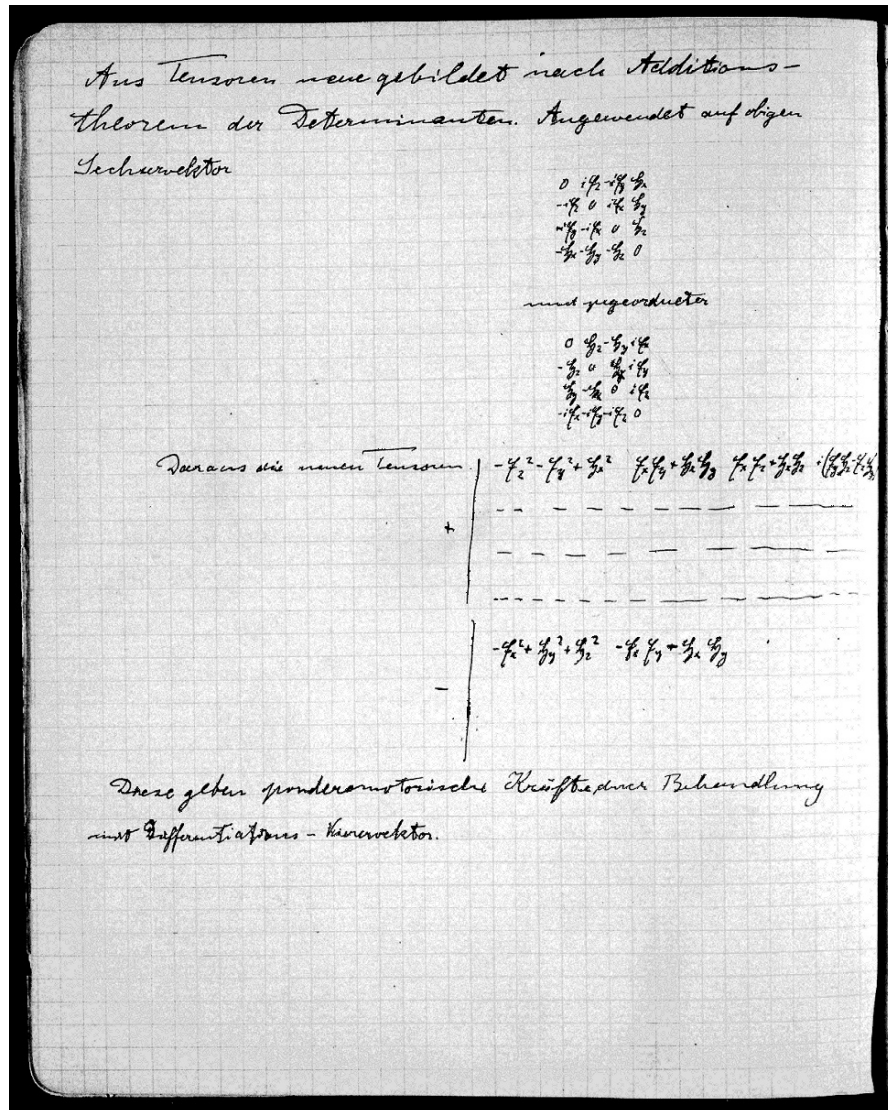 Aus Tensoren neue gebildet nach Additions-
theorem der Determinanten. Angewendet auf obigen
Sechservektor
0 i𝔈z -i𝔈y ℌx
-i𝔈z 0 i𝔈x ℌy
i𝔈y -i𝔈x 0 ℌz
-ℌx -ℌy -ℌz 0
und zugeordneter
0 ℌz -ℌy i𝔈x
-ℌz 0 ℌx i𝔈y
ℌy -ℌx 0 i𝔈z
-i𝔈x -i𝔈y -i𝔈z 0
Daraus die neuen Tensoren | -𝔈z² - 𝔈y² + ℌx² 𝔈x𝔈y + ℌxℌy 𝔈x𝔈z + ℌxℌz i(𝔈yℌz - 𝔈zℌy)
+
-𝔈x² + ℌy² + ℌz² -𝔈x𝔈y - ℌxℌy
-
Diese geben ponderomotorische Kräfte durch Behandlung
mit Differentiations-Vierervektor.